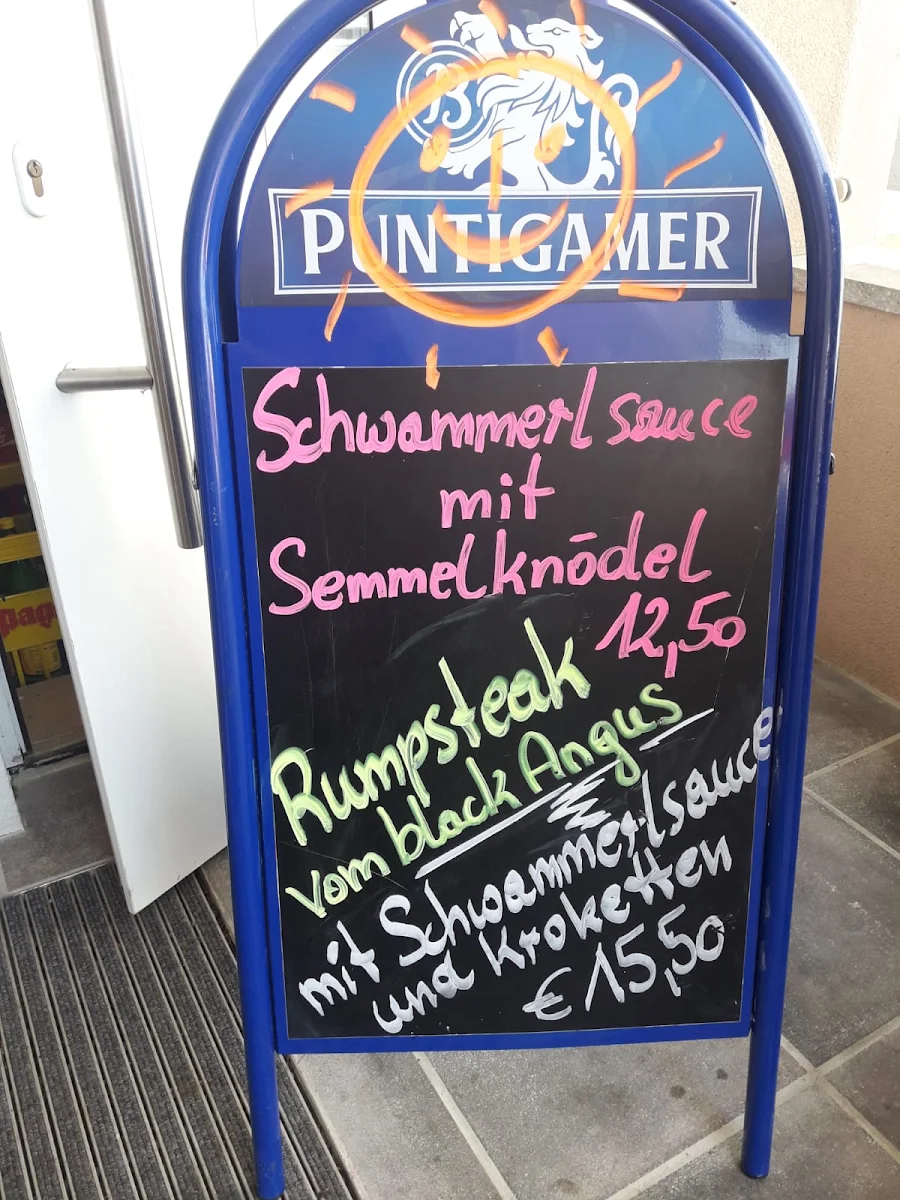 B
PUNTIGAMER
Schwammerl sauce
mit
Semmelknōdel
12,50
Rumpsteak
vom black Angus
mit Schwammerlsauce
und Kroketten
€ 15,50